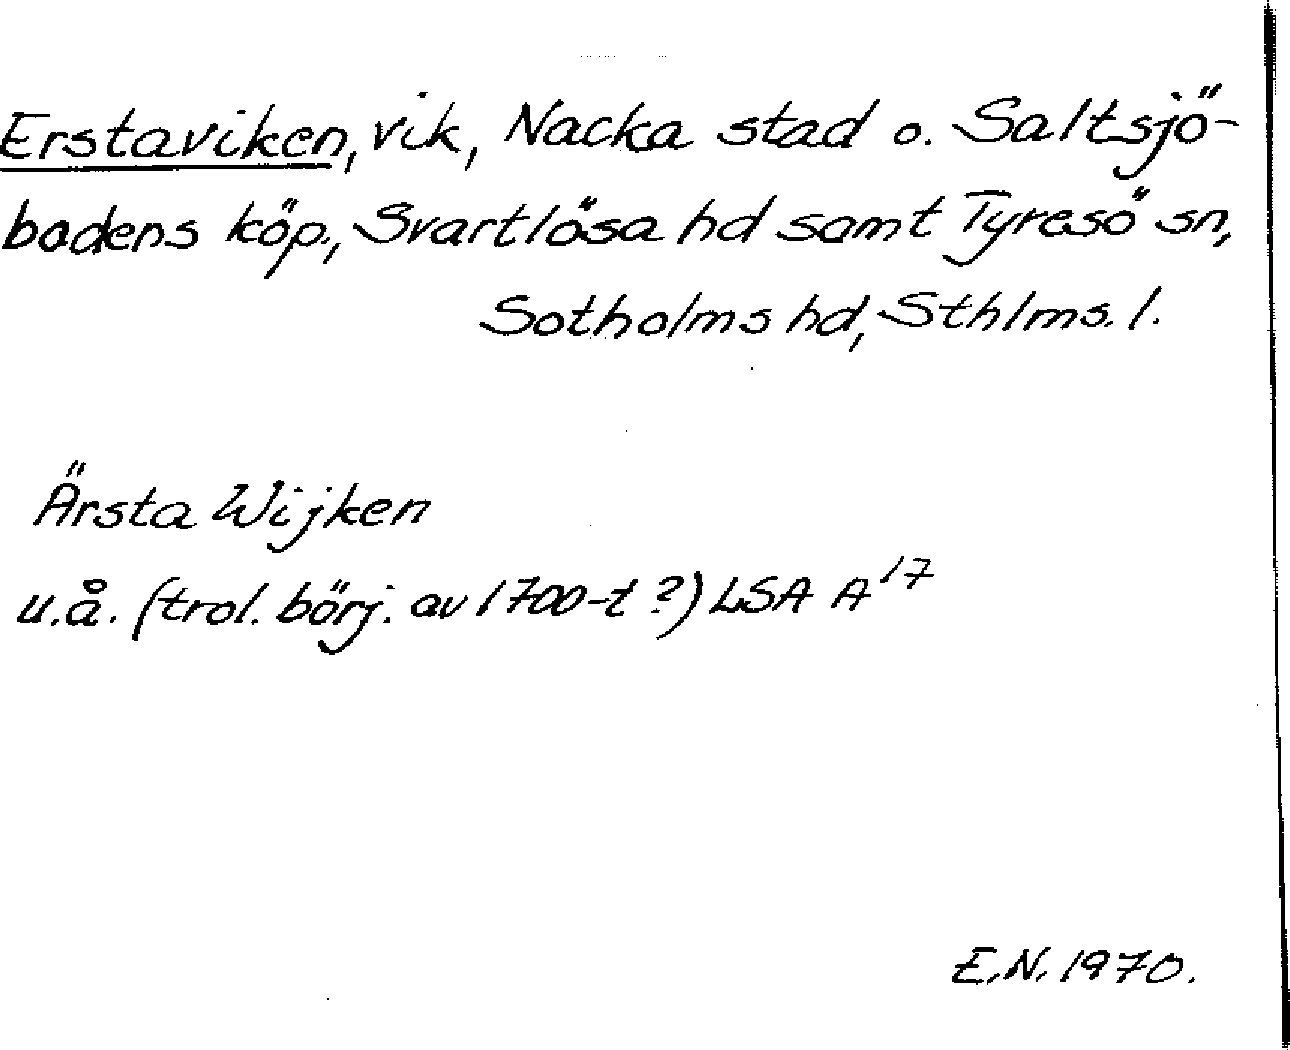 Erstaviken, vik, Nacka stad o. Saltsjö-
badens köp., Svartlösa hd samt Tyresö sn,
Sotholms hd, Sthlms. l.
Ärsta Wijken
u.å. (trol. börj. av 1700-t ?) LSA A 17
E.N. 1970.